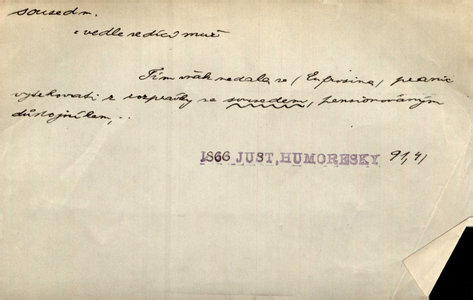 soused m.
: vedle sedící muž
Tím však nedala se /Eufrosina/ pranic
vytrhovati z rozprávky se sousedem, pensionovaným
důstojníkem,..
1866 JUST, HUMORESKY 91,41